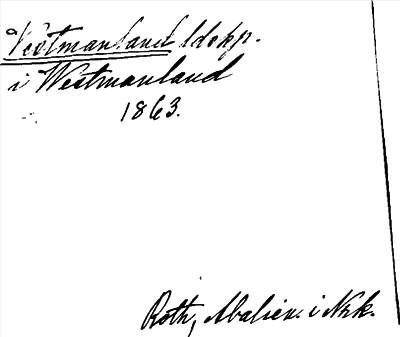 Vestmanland ldskp.
i Westmanland
1863.
Roth, Abalien. i Nrk.